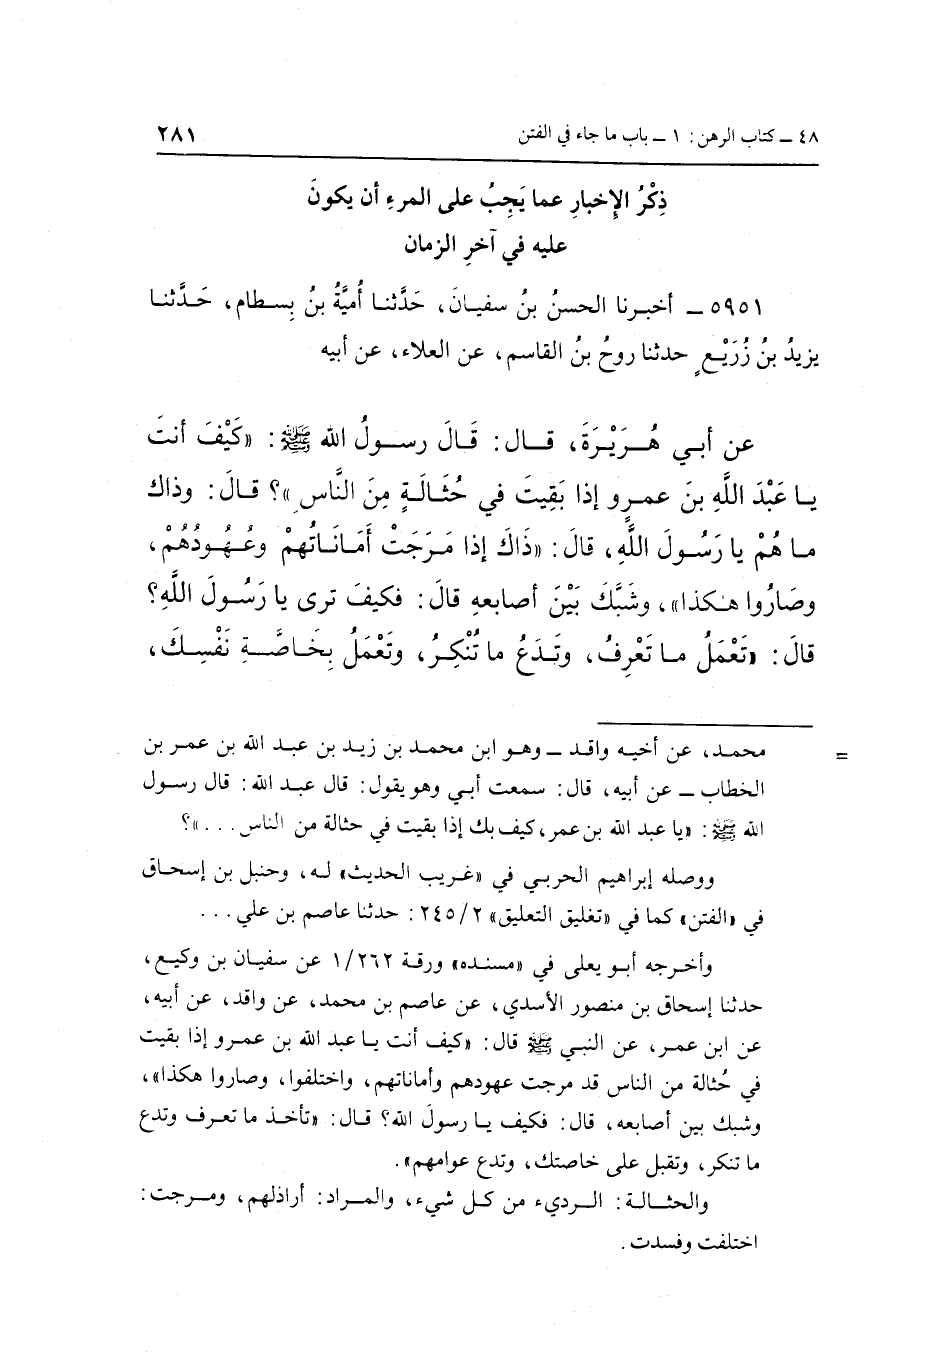 ٤٨ ـ كتاب الرهن: ١ ـ باب ما جاء في الفتن ٢٨١
ذِكْرُ الإِخبارِ عما يَجِبُ على المرءِ أن يكونَ
عليه في آخرِ الزمان
٥٩٥١ ـ أخبرنا الحسنُ بنُ سفيانَ، حَدَّثنا أُميَّةُ بنُ بِسطام، حَدَّثنا
يزيدُ بنُ زُرَيْعٍ حدثنا روحُ بنُ القاسم، عن العلاء، عن أبيه
عن أبي هُرَيْرَةَ، قال: قَالَ رسولُ الله ﷺ: «كَيْفَ أنتَ
يا عَبْدَ اللَّهِ بنَ عمرٍو إذا بَقِيتَ في حُثَالَةٍ مِنَ النَّاسِ»؟ قالَ: وذاكَ
ما هُمْ يا رَسُولَ اللَّهِ، قالَ: «ذَاكَ إذا مَرَجَتْ أَمَانَاتُهمْ وعُهُودُهُمْ،
وصَارُوا هكذا»، وشَبَّكَ بَيْنَ أصابعهِ قالَ: فكيفَ ترى يا رَسُولَ اللَّهِ؟
قالَ: «تَعْمَلُ ما تَعْرِفُ، وتَدَعُ ما تُنْكِرُ، وتَعْمَلُ بِخَاصَّةِ نَفْسِكَ،
= محمد، عن أخيه واقد ـ وهو ابن محمد بن زيد بن عبد الله بن عمر بن
الخطاب ـ عن أبيه، قال: سمعت أبي وهو يقول: قال عبد الله: قال رسول
الله ﷺ: «يا عبد الله بن عمر، كيف بك إذا بقيت في حثالة من الناس...»؟
ووصله إبراهيم الحربي في «غريب الحديث» له، وحنبل بن إسحاق
في «الفتن» كما في «تغليق التعليق» ٢٤٥/٢: حدثنا عاصم بن علي...
وأخرجه أبو يعلى في «مسنده» ورقة ١/٢٦٢ عن سفيان بن وكيع،
حدثنا إسحاق بن منصور الأسدي، عن عاصم بن محمد، عن واقد، عن أبيه،
عن ابن عمر، عن النبي ﷺ قال: «كيف أنت يا عبد الله بن عمرو إذا بقيت
في حُثالة من الناس قد مرجت عهودهم وأماناتهم، واختلفوا، وصاروا هكذا»،
وشبك بين أصابعه، قال: فكيف يا رسولَ الله؟ قال: «تأخذ ما تعرف وتدع
ما تنكر، وتقبل على خاصتك، وتدع عوامهم».
والحثالة: الرديء من كل شيء، والمراد: أراذلهم، ومرجت:
اختلفت وفسدت.